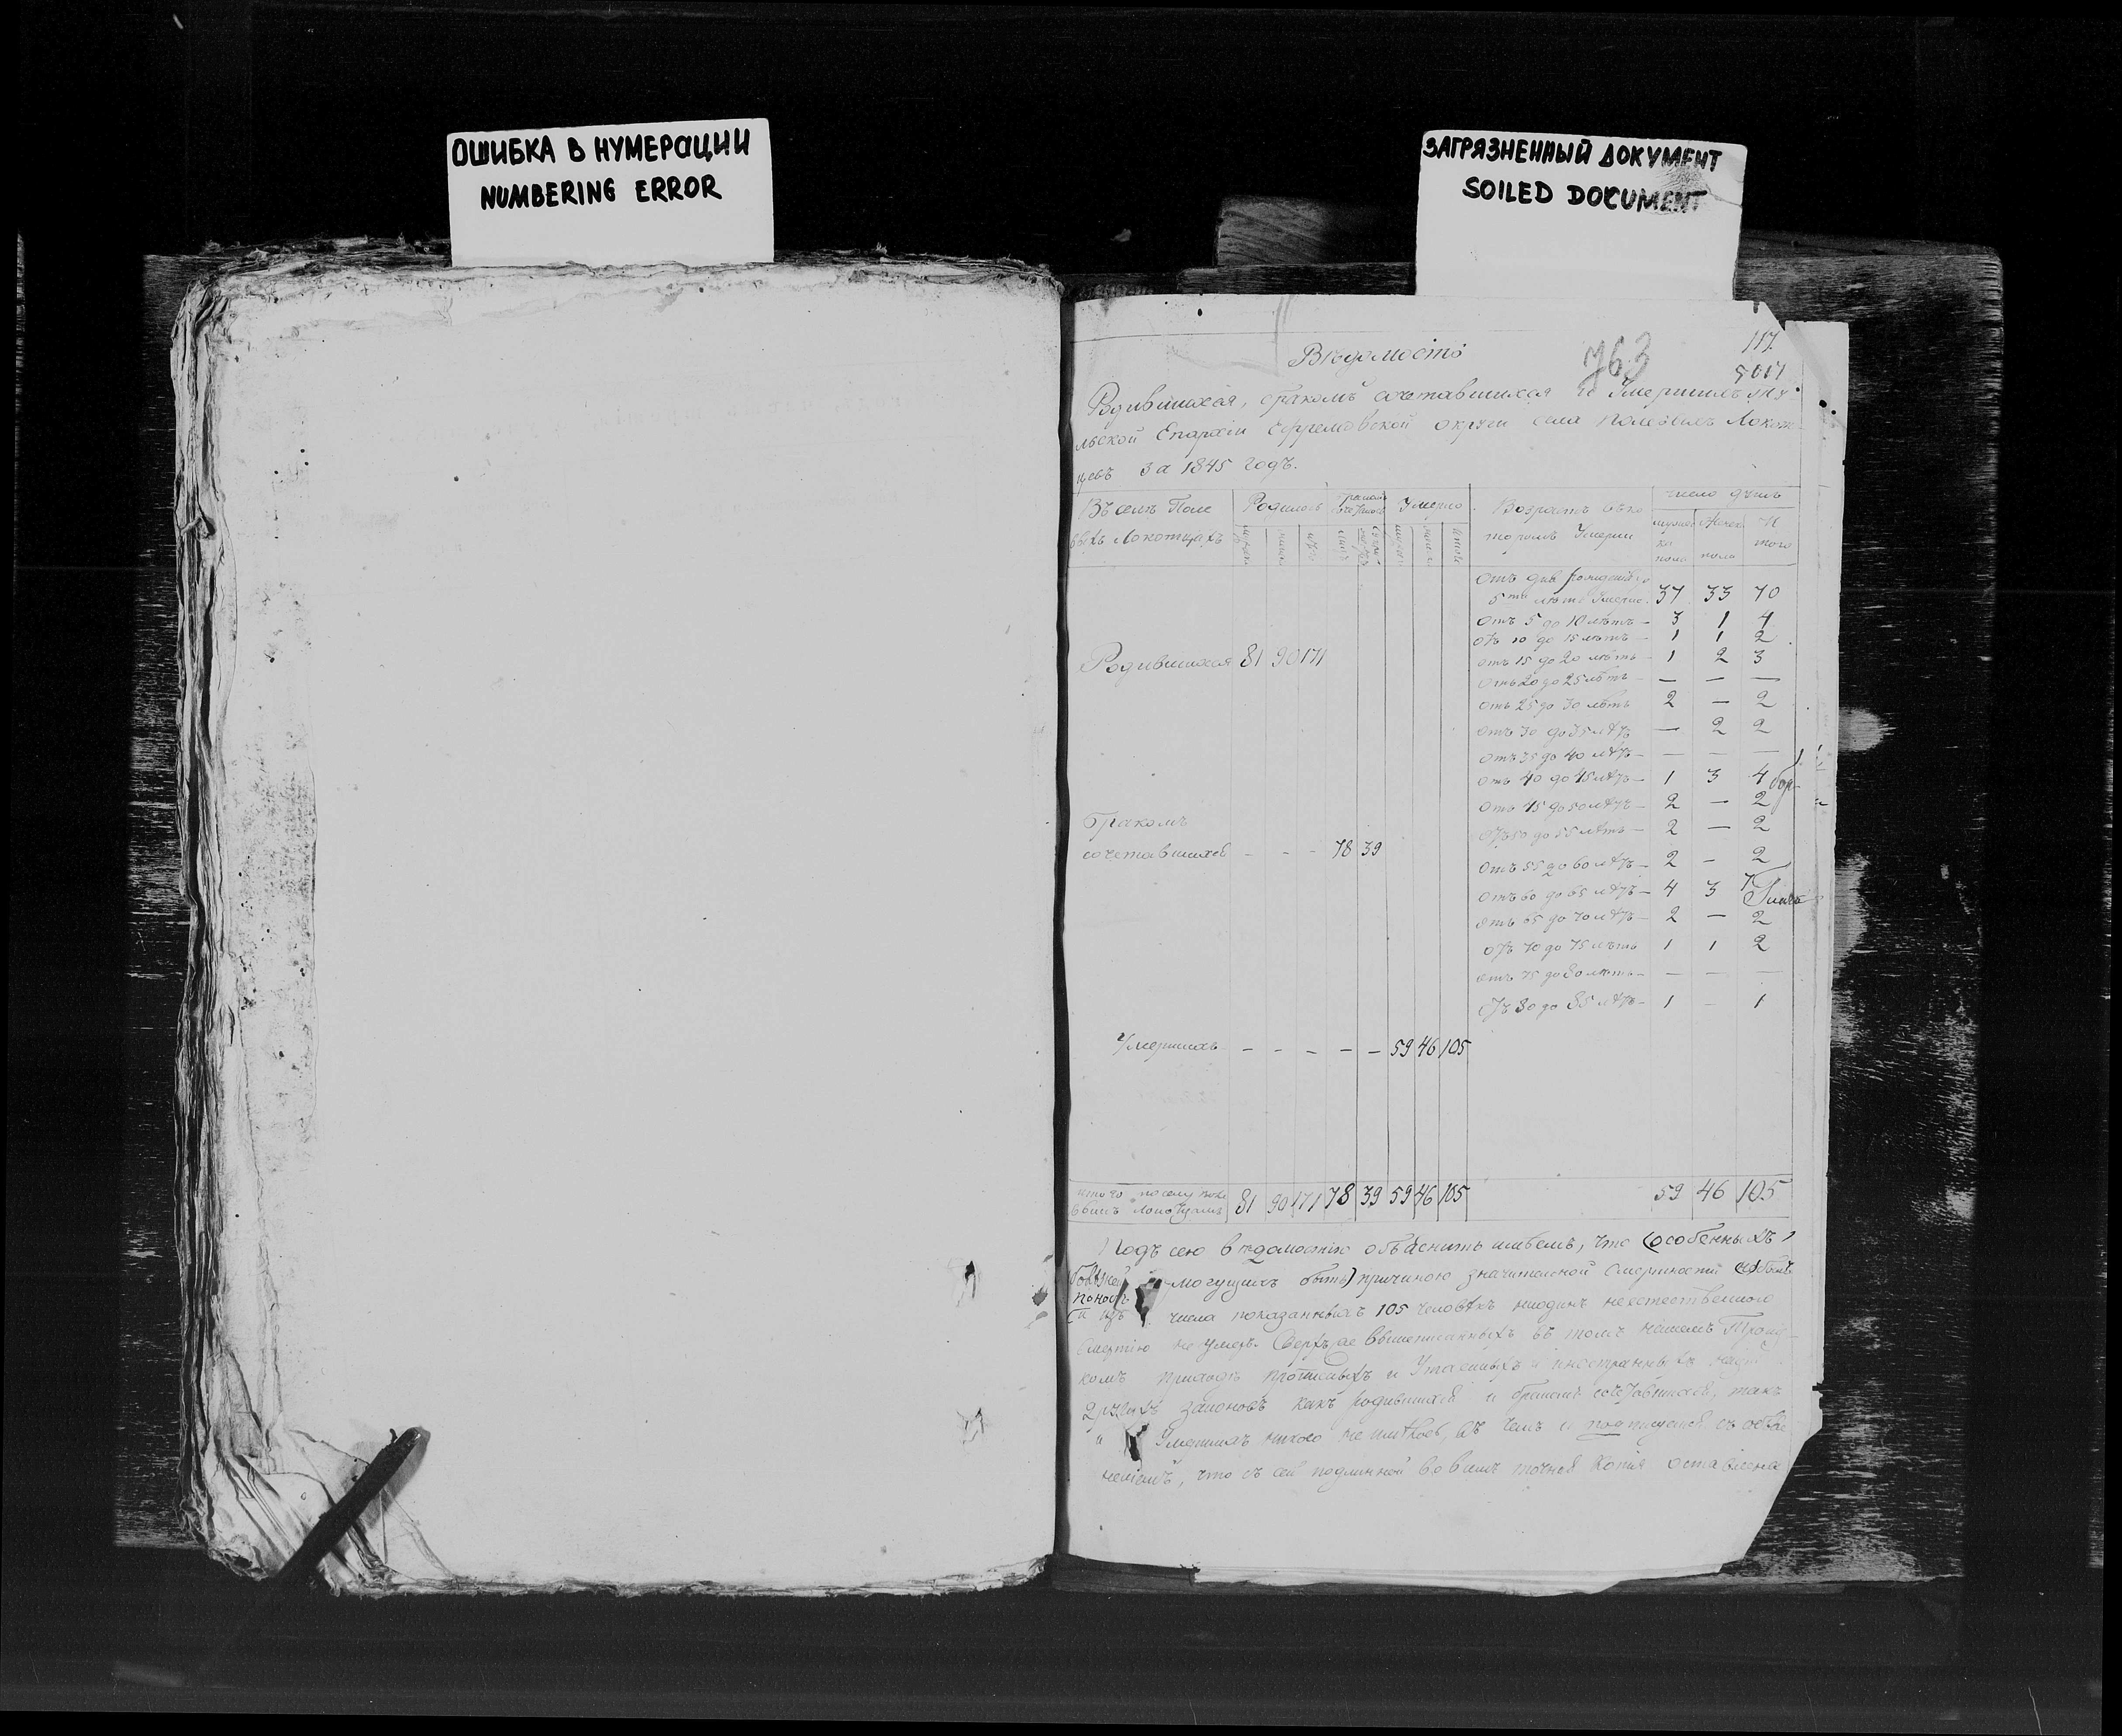 ОШИБКА В НУМЕРАЦИИ
NUMBERING ERROR
ЗАГРЯЗНЕННЫЙ ДОКУМЕНТ
SOILED DOCUMENT
Вѣдомость
763
117
Родившихся, бракомъ сочетавшихся и Умершихъ Ту
льской Епархіи Ефремовской округи села Полевыхъ Локот
цевъ за 1845 годъ.
Въ селѣ Поле
выхъ Локотцахъ
Родилось
бракомъ
Умерло
Возрастъ въ ко
торомъ Умерли
число душъ
мужес
ка
пола
женск
пола
И
того
Отъ дня рожденія до
5ти лѣтъ Умерло. 37 33 70
Отъ 5 до 10 лѣтъ — 3 1 4
Отъ 10 до 15 лѣтъ — 1 1 2
Отъ 15 до 20 лѣтъ — 1 2 3
Отъ 20 до 25 лѣтъ — — — —
Отъ 25 до 30 лѣтъ 2 — 2
Отъ 30 до 35 лѣтъ — 2 2
Отъ 35 до 40 лѣтъ — — — —
Отъ 40 до 45 лѣтъ — 1 3 4
Отъ 45 до 50 лѣтъ — 2 — 2
Отъ 50 до 55 лѣтъ — 2 — 2
Отъ 55 до 60 лѣтъ — 2 — 2
Отъ 60 до 65 лѣтъ — 4 3 7
Отъ 65 до 70 лѣтъ — 2 — 2
Отъ 70 до 75 лѣтъ 1 1 2
Отъ 75 до 80 лѣтъ — — — —
Отъ 80 до 85 лѣтъ — 1 — 1
Родившихся 81 90 171
Бракомъ
сочетавшихся — — — 78 39
Умершихъ — — — — — 59 46 105
Итого по селу Поле
вымъ Локотцамъ 81 90 171 78 39 59 46 105 59 46 105
Подъ сею вѣдомостію объяснить имѣемъ, что (особенныхъ
болѣзней могущихъ быть) причиною значительной смертности
и изъ числа показанныхъ 105 человѣкъ ниодинъ неестественною
смертію не умеръ. Сверхъ же вышеписанныхъ въ томъ нашемъ
комъ приходѣ и иностранныхъ
законовъ какъ родившихся и бракомъ сочетавшихся, такъ
и Умершихъ никого не имѣлось, въ чемъ и подписуемся съ объяс
неніемъ, что съ сей подлинной во всемъ точная копія оставлена